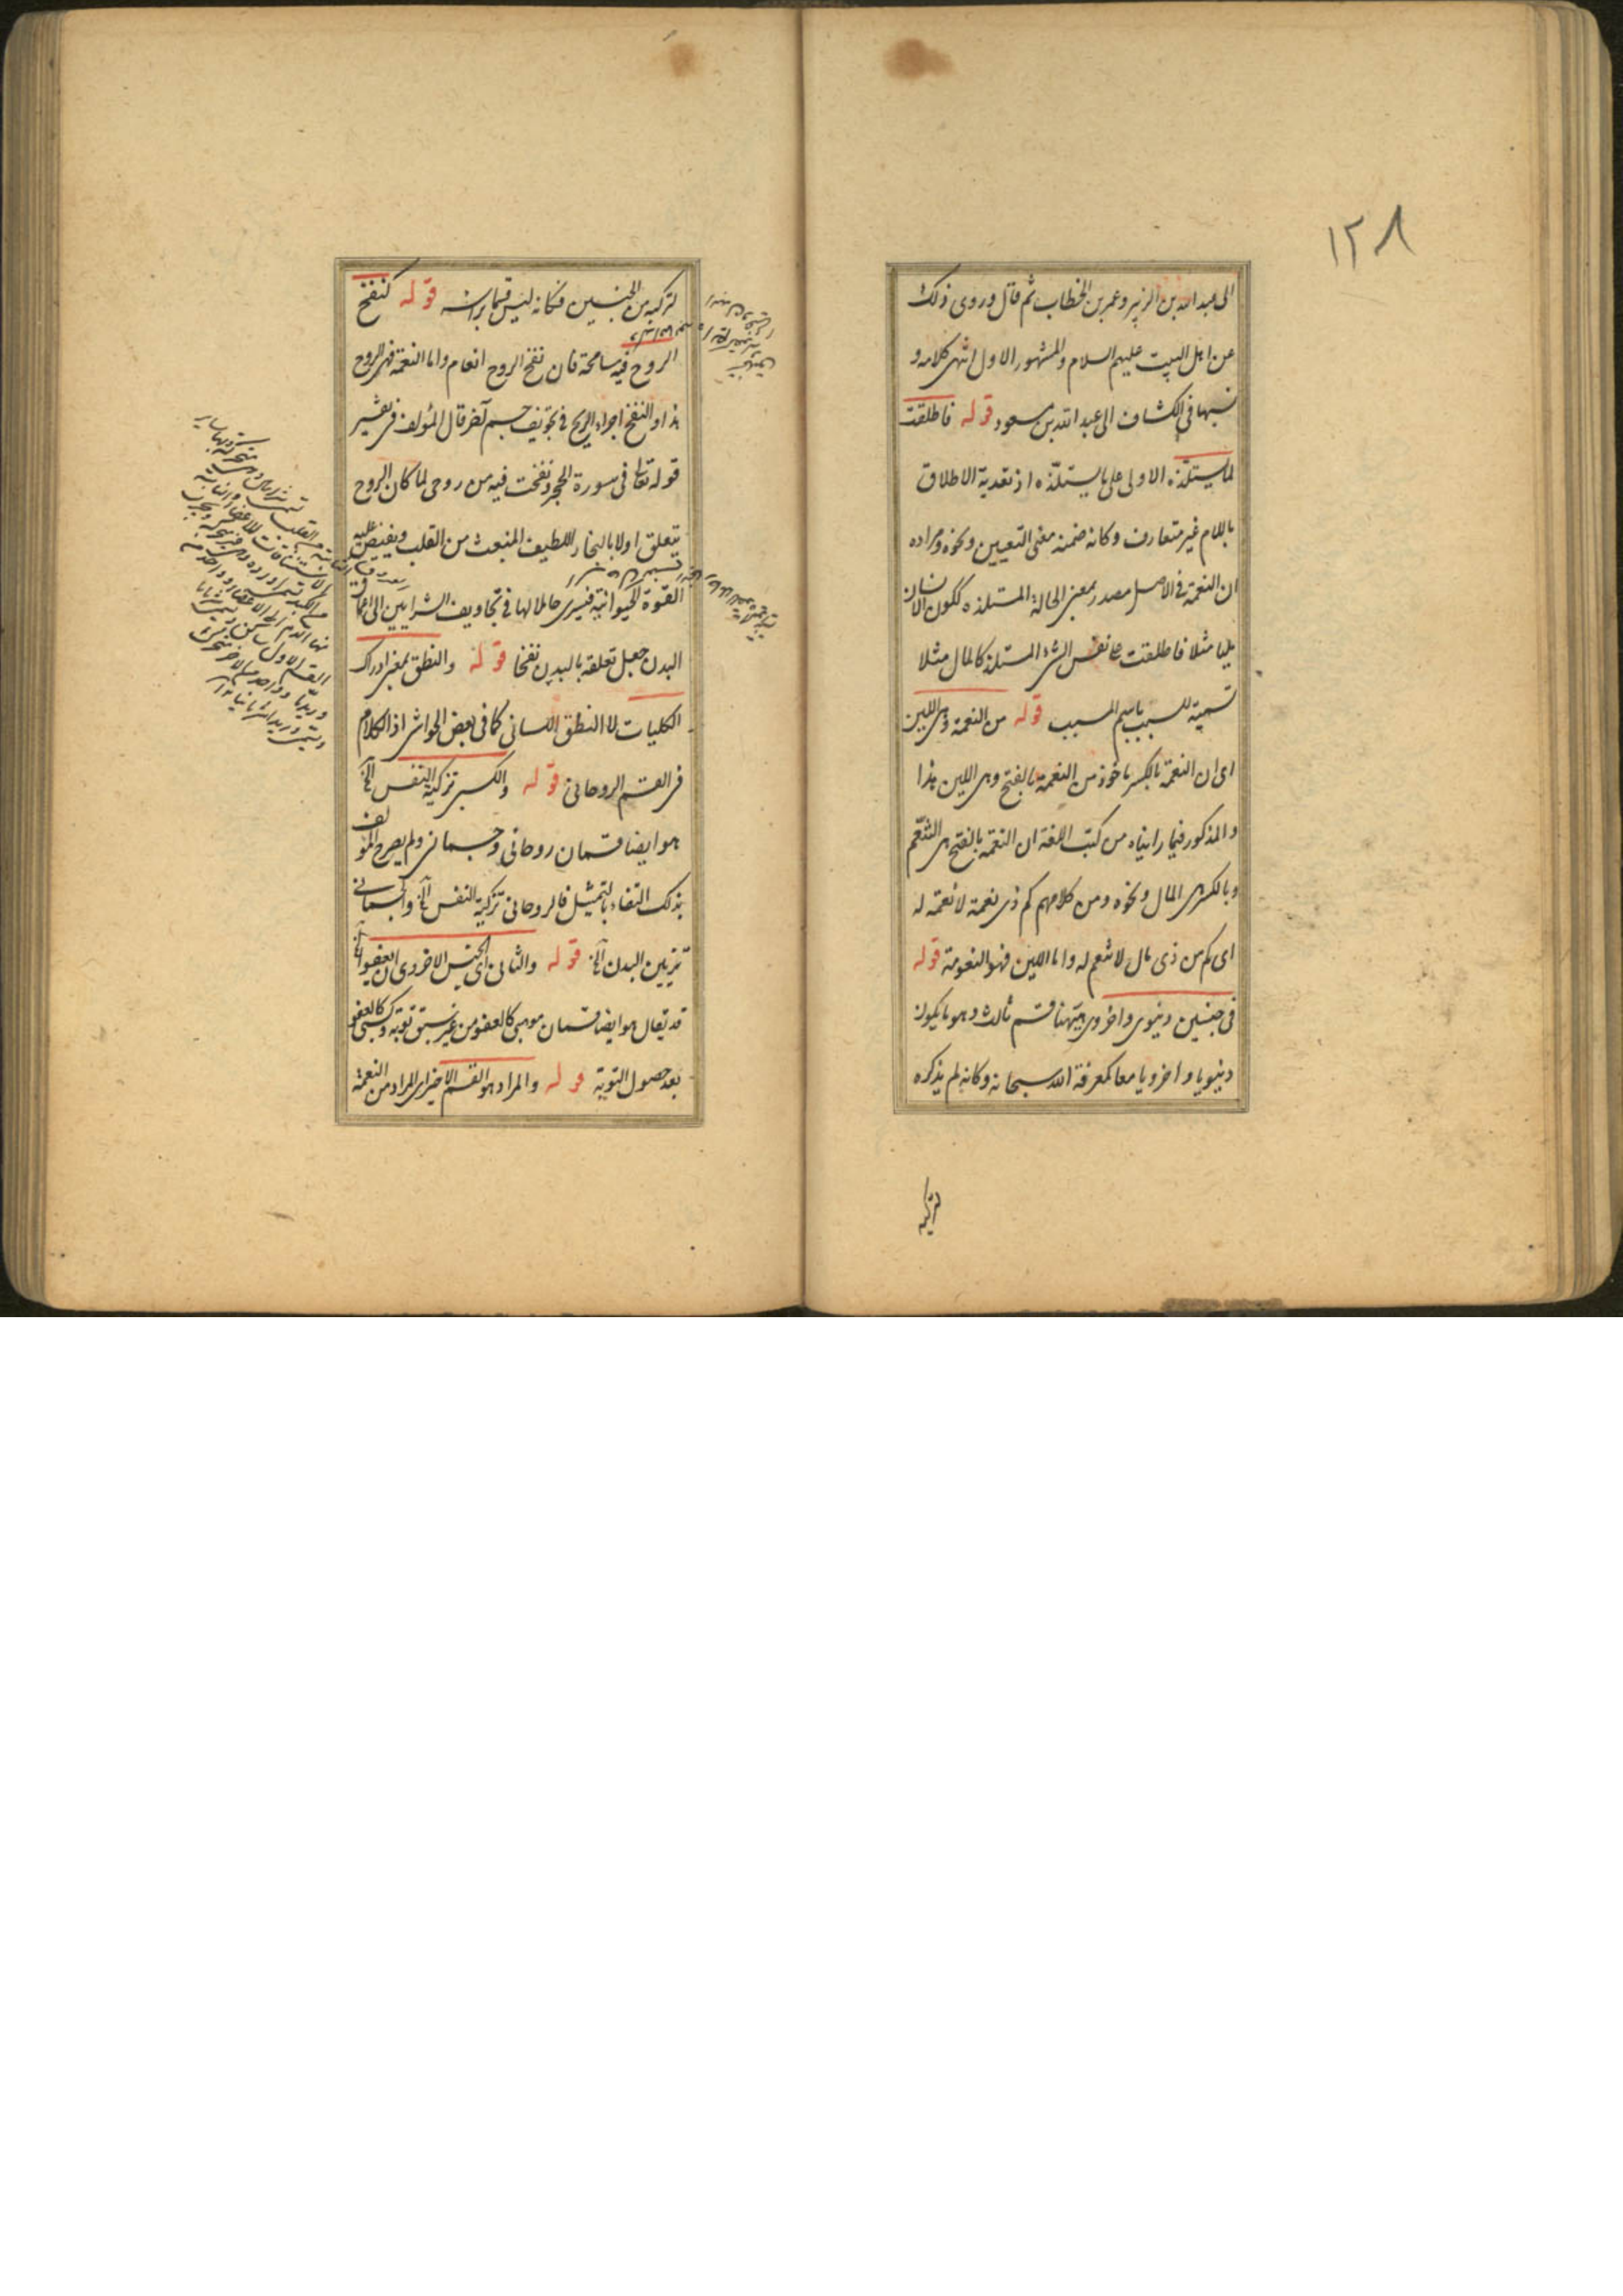 ١٢٨
الى عبد الله بن الزبير وعمر بن الخطاب ثم قال وروى ذلك
عن اهل البيت عليهم السلام والمشهور الاول انتهى كلامه و
نسبها فى الكشاف الى عبد الله بن مسعود قوله فاطلقت
لما يستلذه الاولى على ما يستلذه اذ تعدية الاطلاق
باللام غير متعارف وكانه ضمنه معنى التعيين ونحوه ومراده
ان النعمة فى الاصل مصدر بمعنى الحالة المستلذه ككون الانسان
مليا مثلا فاطلقت على نفس الشئ المستلذ كالمال مثلا
تسمية للسبب باسم المسبب قوله من النعمة وهى اللين
اى ان النعمة بالكسر ماخوذ من النعمة بالفتح وهى اللين هذا
والمذكور فيما رايناه من كتب اللغة ان النعمة بالفتح هى التنعّم
وبالكسر هى المال ونحوه ومن كلامهم كم ذى نعمة لا نعمة له
اى كم من ذى مال لا تنعم له واما اللين فهو النعومة قوله
فى جنسين دنيوى واخروى ههنا قسم ثالث وهو ما يكون
دنيويا واخرويا معا كمعرفة الله سبحانه وكانه لم يذكره
تركيبه
لتركبه من الجنسين فكانه ليس قسما براسه قوله كنفخ
الروح فيه مسامحة فان نفخ الروح انعام واما النعمة فهى الروح
هذا والنفخ اجراء الريح فى تجويف جسم آخر قال المؤلف فى تفسير
قوله تعالى فى سورة الحجر ونفخت فيه من روحى لما كان الروح
يتعلق اولا بالبخار اللطيف المنبعث من القلب ويفيض عليه
القوة الحيوانية فيسرى حاملا لها فى تجاويف الشرايين الى اعماق
البدن جعل تعلقه بالبدن نفخا قوله والنطق بمعنى ادراك
الكليات لا النطق اللسانى كما فى بعض الحواشى اذ الكلام
فى القسم الروحانى قوله والكسبى تزكية النفس الخ
هو ايضا قسمان روحانى وجسمانى ولم يصرح المؤلف
بذلك اكتفاء بالتمثيل فالروحانى تزكية النفس الخ والجسمانى
تزيين البدن الخ قوله والثانى اى الجنس الاخروى ان يعفو الخ
قد يقال هو ايضا قسمان موهبى كالعفو من غير سبق توبة وكسبى كالعفو
بعد حصول التوبة قوله والمراد هو القسم الاخير اى المراد من النعمة